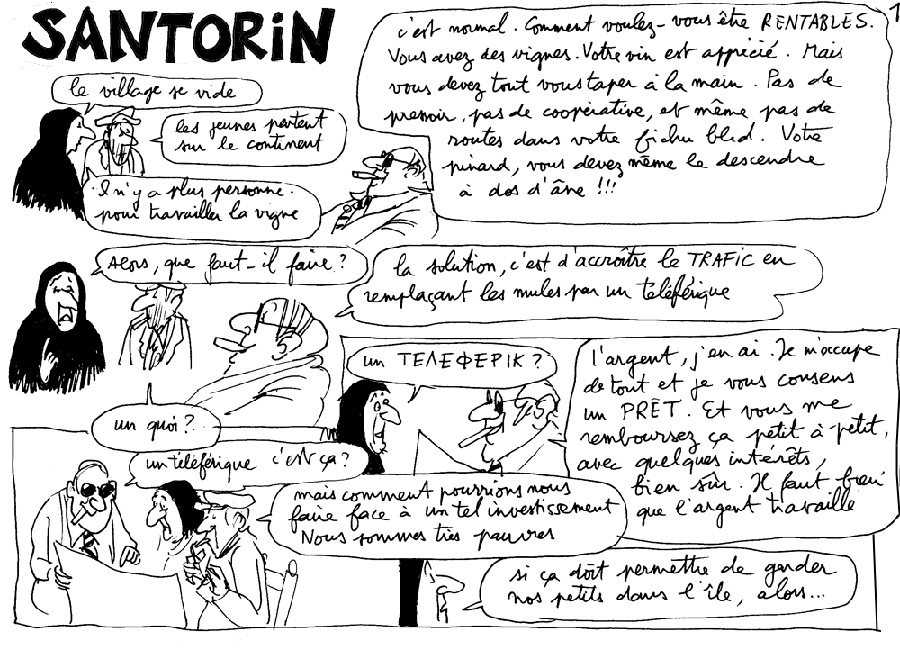 SANTORiN
1
le village se vide
les jeunes partent
sur le continent
Il n'y a plus personne
pour travailler la vigne
c'est normal. Comment voulez-vous être RENTABLES.
Vous avez des vignes. Votre vin est apprécié. Mais
vous devez tout vous taper à la main. Pas de
pressoir, pas de coopérative, et même pas de
routes dans votre fichu bled. Votre
pinard, vous devez même le descendre
à dos d'âne !!!
Alors, que faut-il faire ?
la solution, c'est d'accroître le TRAFIC en
remplaçant les mules par un téléférique
un quoi ?
un ТЕЛЕФЕРIК ?
l'argent, j'en ai. Je m'occupe
de tout et je vous consens
un PRÊT. Et vous me
remboursez ça petit à petit,
avec quelques intérêts,
bien sûr. Il faut bien
que l'argent travaille
un téléférique c'est ça ?
mais comment pourrions nous
faire face à un tel investissement
Nous sommes très pauvres
si ça doit permettre de garder
nos petits dans l'île, alors...